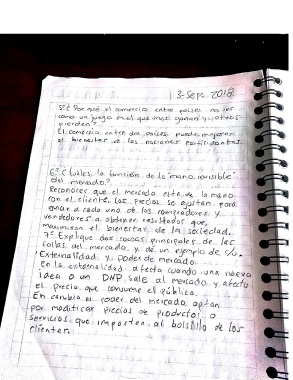 3-Sep. 2018
5° ¿Por qué el comercio entre países no es
como un juego en el que unos ganan y otros
pierden?
El comercio entre dos países puede mejorar
el bienestar de las naciones participantes
6° ¿Cuál es la función de la "mano invisible"
del mercado?
Reconocer que el mercado esta de la mano
con el cliente, los precios se ajustan para
a cada uno de los compradores y
vendedores a obtener resultados que
maximizan el bienestar de la sociedad.
7° Explique dos causas principales de las
fallas del mercado y dé un ejemplo de c/u.
Externalidad y poder de mercado.
En la externalidad afecta cuando una nueva
idea o un DNP sale al mercado y afecta
el precio que consume el público.
En cambio el poder del mercado optan
por modificar precios de productos o
servicios que impactan al bolsillo de los
clientes.